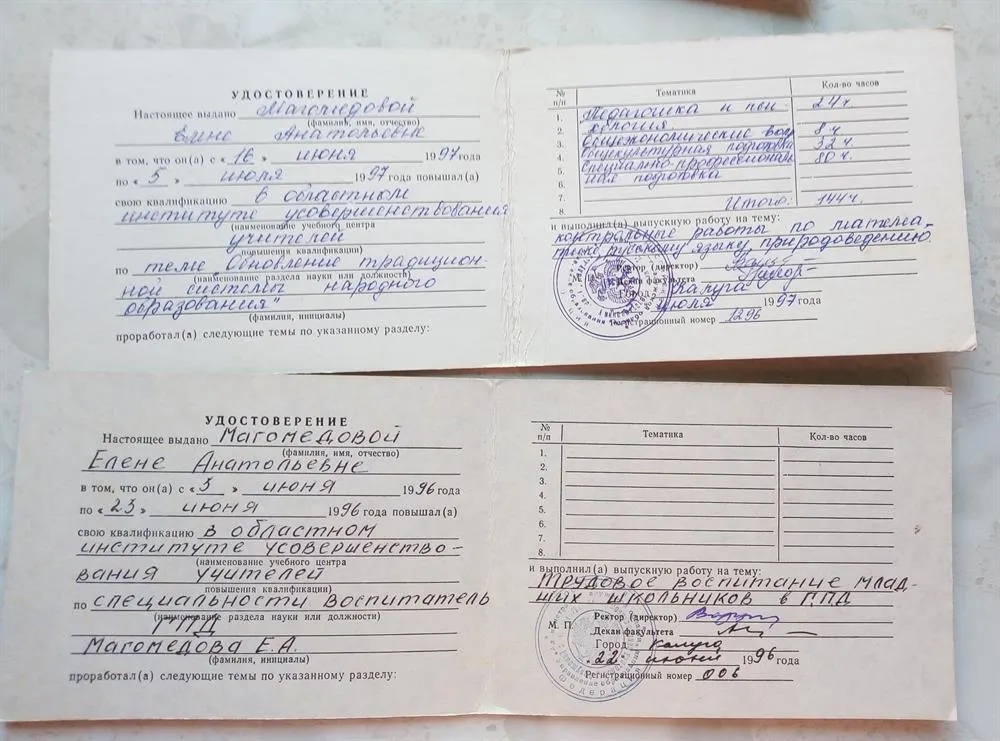 УДОСТОВЕРЕНИЕ
Настоящее выдано Магомедовой
(фамилия, имя, отчество)
Елене Анатольевне
в том, что он(а) с «16» июня 1997 года
по «5» июля 1997 года повышал(а)
свою квалификацию в областном
институте усовершенствования
(наименование учебного центра
учителей
повышения квалификации)
по теме "Обновление традицион-
(наименование раздела науки или должности)
ной системы народного
образования"
(фамилия, инициалы)
проработал(а) следующие темы по указанному разделу:
№ п/п Тематика Кол-во часов
1. Педагогика и пси- 24 ч.
2. хология
3. Социоэкономические воп. 8 ч
4. Общекультурная подготовка 32 ч
5. Специально-профессионал 80 ч.
6. ная подготовка
7.
8. Итого: 144 ч.
и выполнил(а) выпускную работу на тему:
контрольные работы по матема-
тике, русскому языку, природоведению.
Ректор (директор)
Декан факультета
Город Калуга
июля 1997 года
Регистрационный номер 1296
УДОСТОВЕРЕНИЕ
Настоящее выдано Магомедовой
(фамилия, имя, отчество)
Елене Анатольевне
в том, что он(а) с «3» июня 1996 года
по «23» июня 1996 года повышал(а)
свою квалификацию в областном
институте усовершенство-
(наименование учебного центра
вания учителей
повышения квалификации)
по специальности воспитатель
(наименование раздела науки или должности)
ГПД
Магомедова Е.А.
(фамилия, инициалы)
проработал(а) следующие темы по указанному разделу:
№ п/п Тематика Кол-во часов
1.
2.
3.
4.
5.
6.
7.
8.
и выполнил(а) выпускную работу на тему:
Трудовое воспитание млад-
ших школьников в ГПД
М. П. Ректор (директор)
Декан факультета
Город Калуга
22 июней 1996 года
Регистрационный номер 006